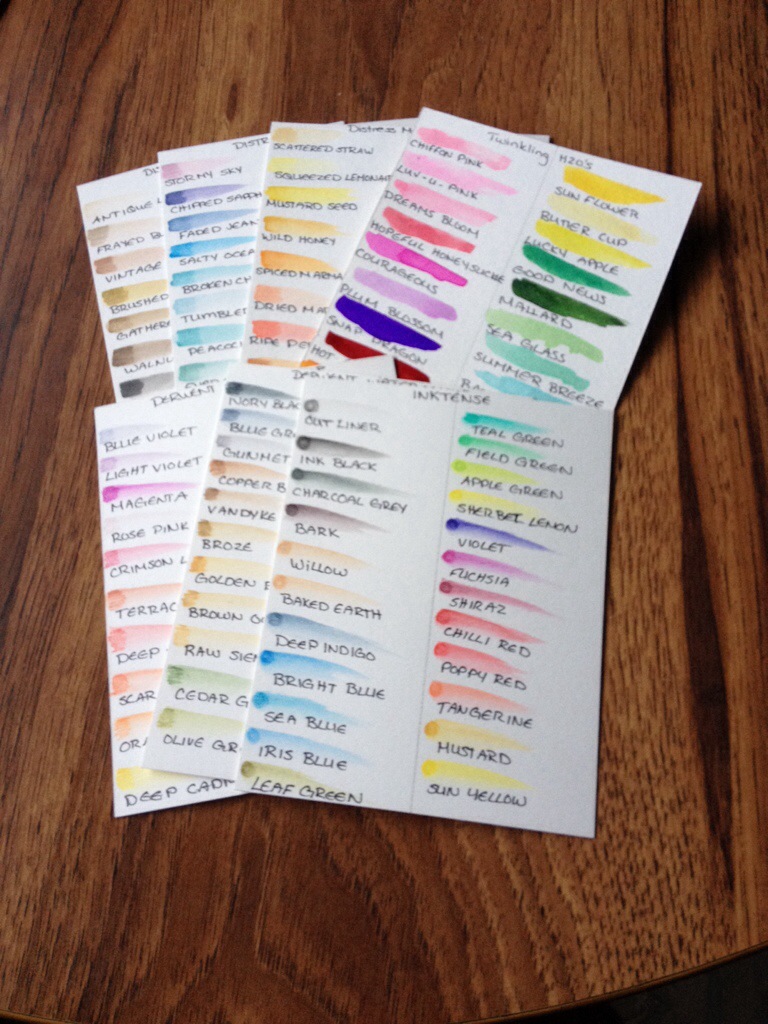 ANTIQUE L
FRAYED B
VINTAGE
BRUSHED
GATHER
WALNU
DISTR
STORMY SKY
CHIPPED SAPPH
FADED JEAN
SALTY OCEA
BROKEN CH
TUMBLE
PEACOC
DISTRESS M
SCATTERED STRAW
SQUEEZED LEMONAD
MUSTARD SEED
WILD HONEY
SPICED MARMA
DRIED MA
RIPE PE
Twinkling H2O's
CHIFFON PINK
LUV-U-PINK
DREAMS BLOOM
HOPEFUL HONEYSUCKLE
COURAGEOUS
PLUM BLOSSOM
SNAP DRAGON
HOT
SUNFLOWER
BUTTER CUP
LUCKY APPLE
GOOD NEWS
MALLARD
SEA GLASS
SUMMER BREEZE
DERWENT
BLUE VIOLET
LIGHT VIOLET
MAGENTA
ROSE PINK
CRIMSON L
TERRAC
DEEP
SCAR
ORA
DEEP CADM
IVORY BLAC
BLUE GR
GUNMET
COPPER B
VANDYKE
BROZE
GOLDEN B
BROWN OC
RAW SIEN
CEDAR G
OLIVE GR
INKTENSE
OUT LINER
INK BLACK
CHARCOAL GREY
BARK
WILLOW
BAKED EARTH
DEEP INDIGO
BRIGHT BLUE
SEA BLUE
IRIS BLUE
LEAF GREEN
TEAL GREEN
FIELD GREEN
APPLE GREEN
SHERBET LEMON
VIOLET
FUCHSIA
SHIRAZ
CHILLI RED
POPPY RED
TANGERINE
MUSTARD
SUN YELLOW